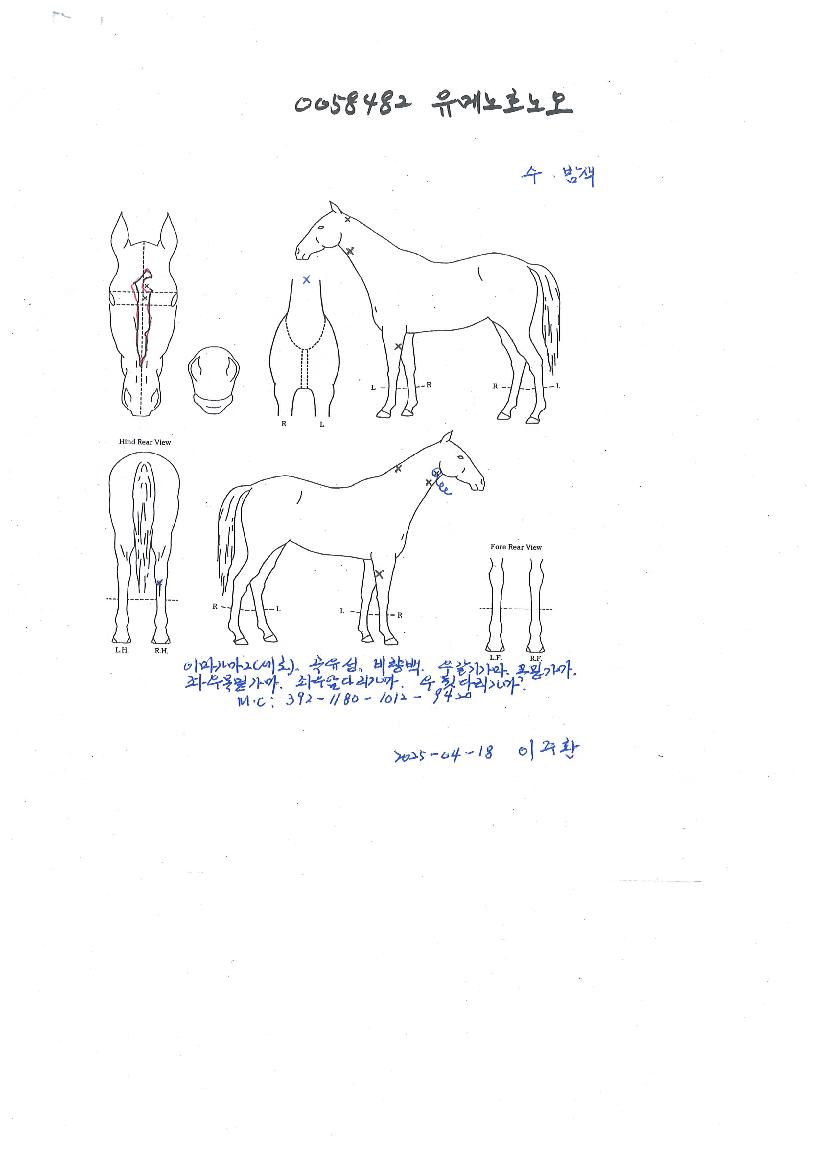 0058482 유메노호노오
수 밤색
R L
L R R L
Hind Rear View
L.H. R.H.
R L L R
Fore Rear View
L.F. R.F.
이마가마2(세로). 곡유성. 비량백. 우갈기가마. 목밑가마.
좌우목밑가마. 좌우앞다리가마. 우뒷다리가마.
M.C: 392-1180-1012-9420
2025-04-18 이주환